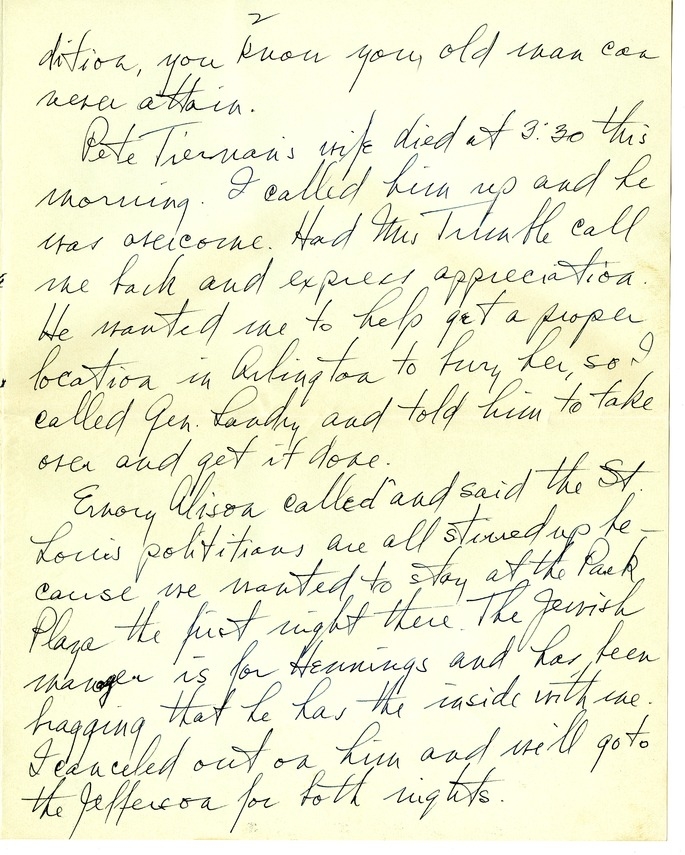 2
dition, you know your old man can
never attain.
Pete Tiernan's wife died at 3:30 this
morning. I called him up and he
was overcome. Had Mrs Trimble call
me back and express appreciation.
He wanted me to help get a proper
location in Arlington to bury her, so I
called Gen. Landry and told him to take
over and get it done.
Emory Alison called and said the St.
Louis polititians are all stirred up be-
cause we wanted to stay at the Park
Plaza the first night there. The Jewish
manager is for Hennings and has been
bragging that he has the inside with me.
I canceled out on him and we'll go to
the Jefferson for both nights.